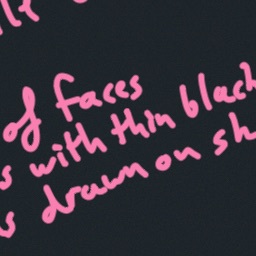 of faces
s with thin black
s drawn on sh